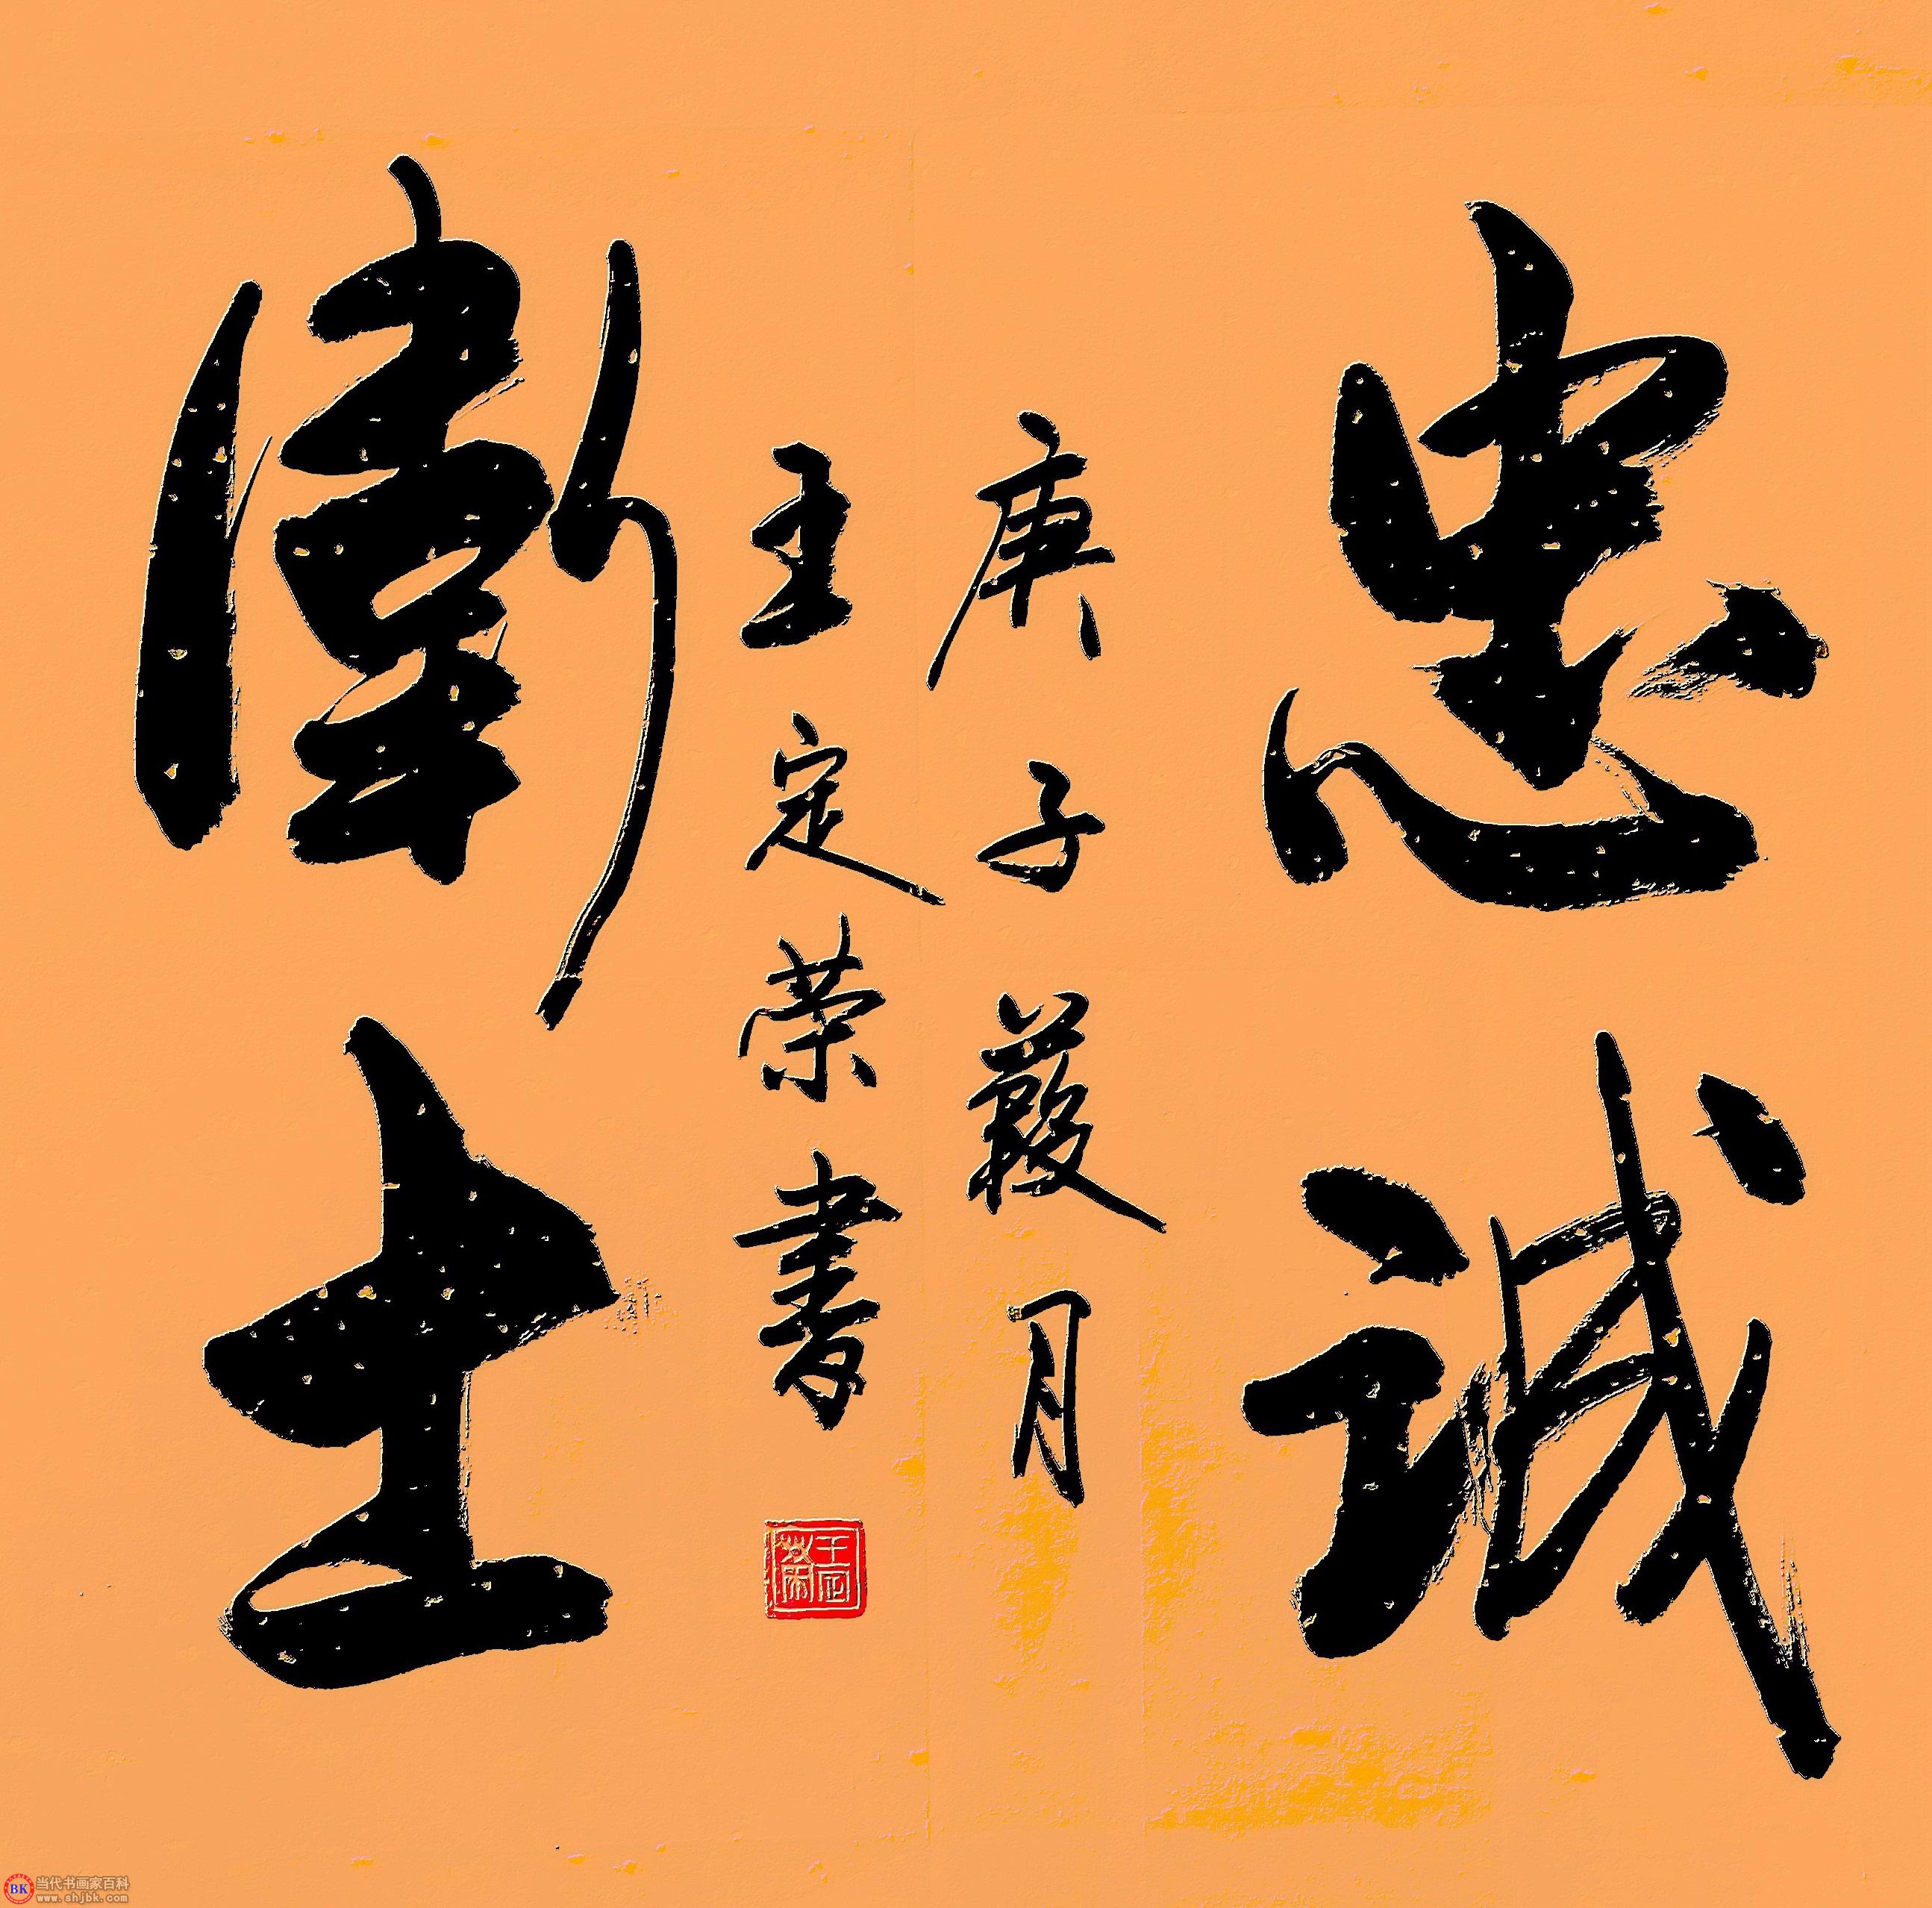 忠誠
庚子葭月
王定荣書
衛士
王定荣
BK 当代书画家百科
www.shjbk.com